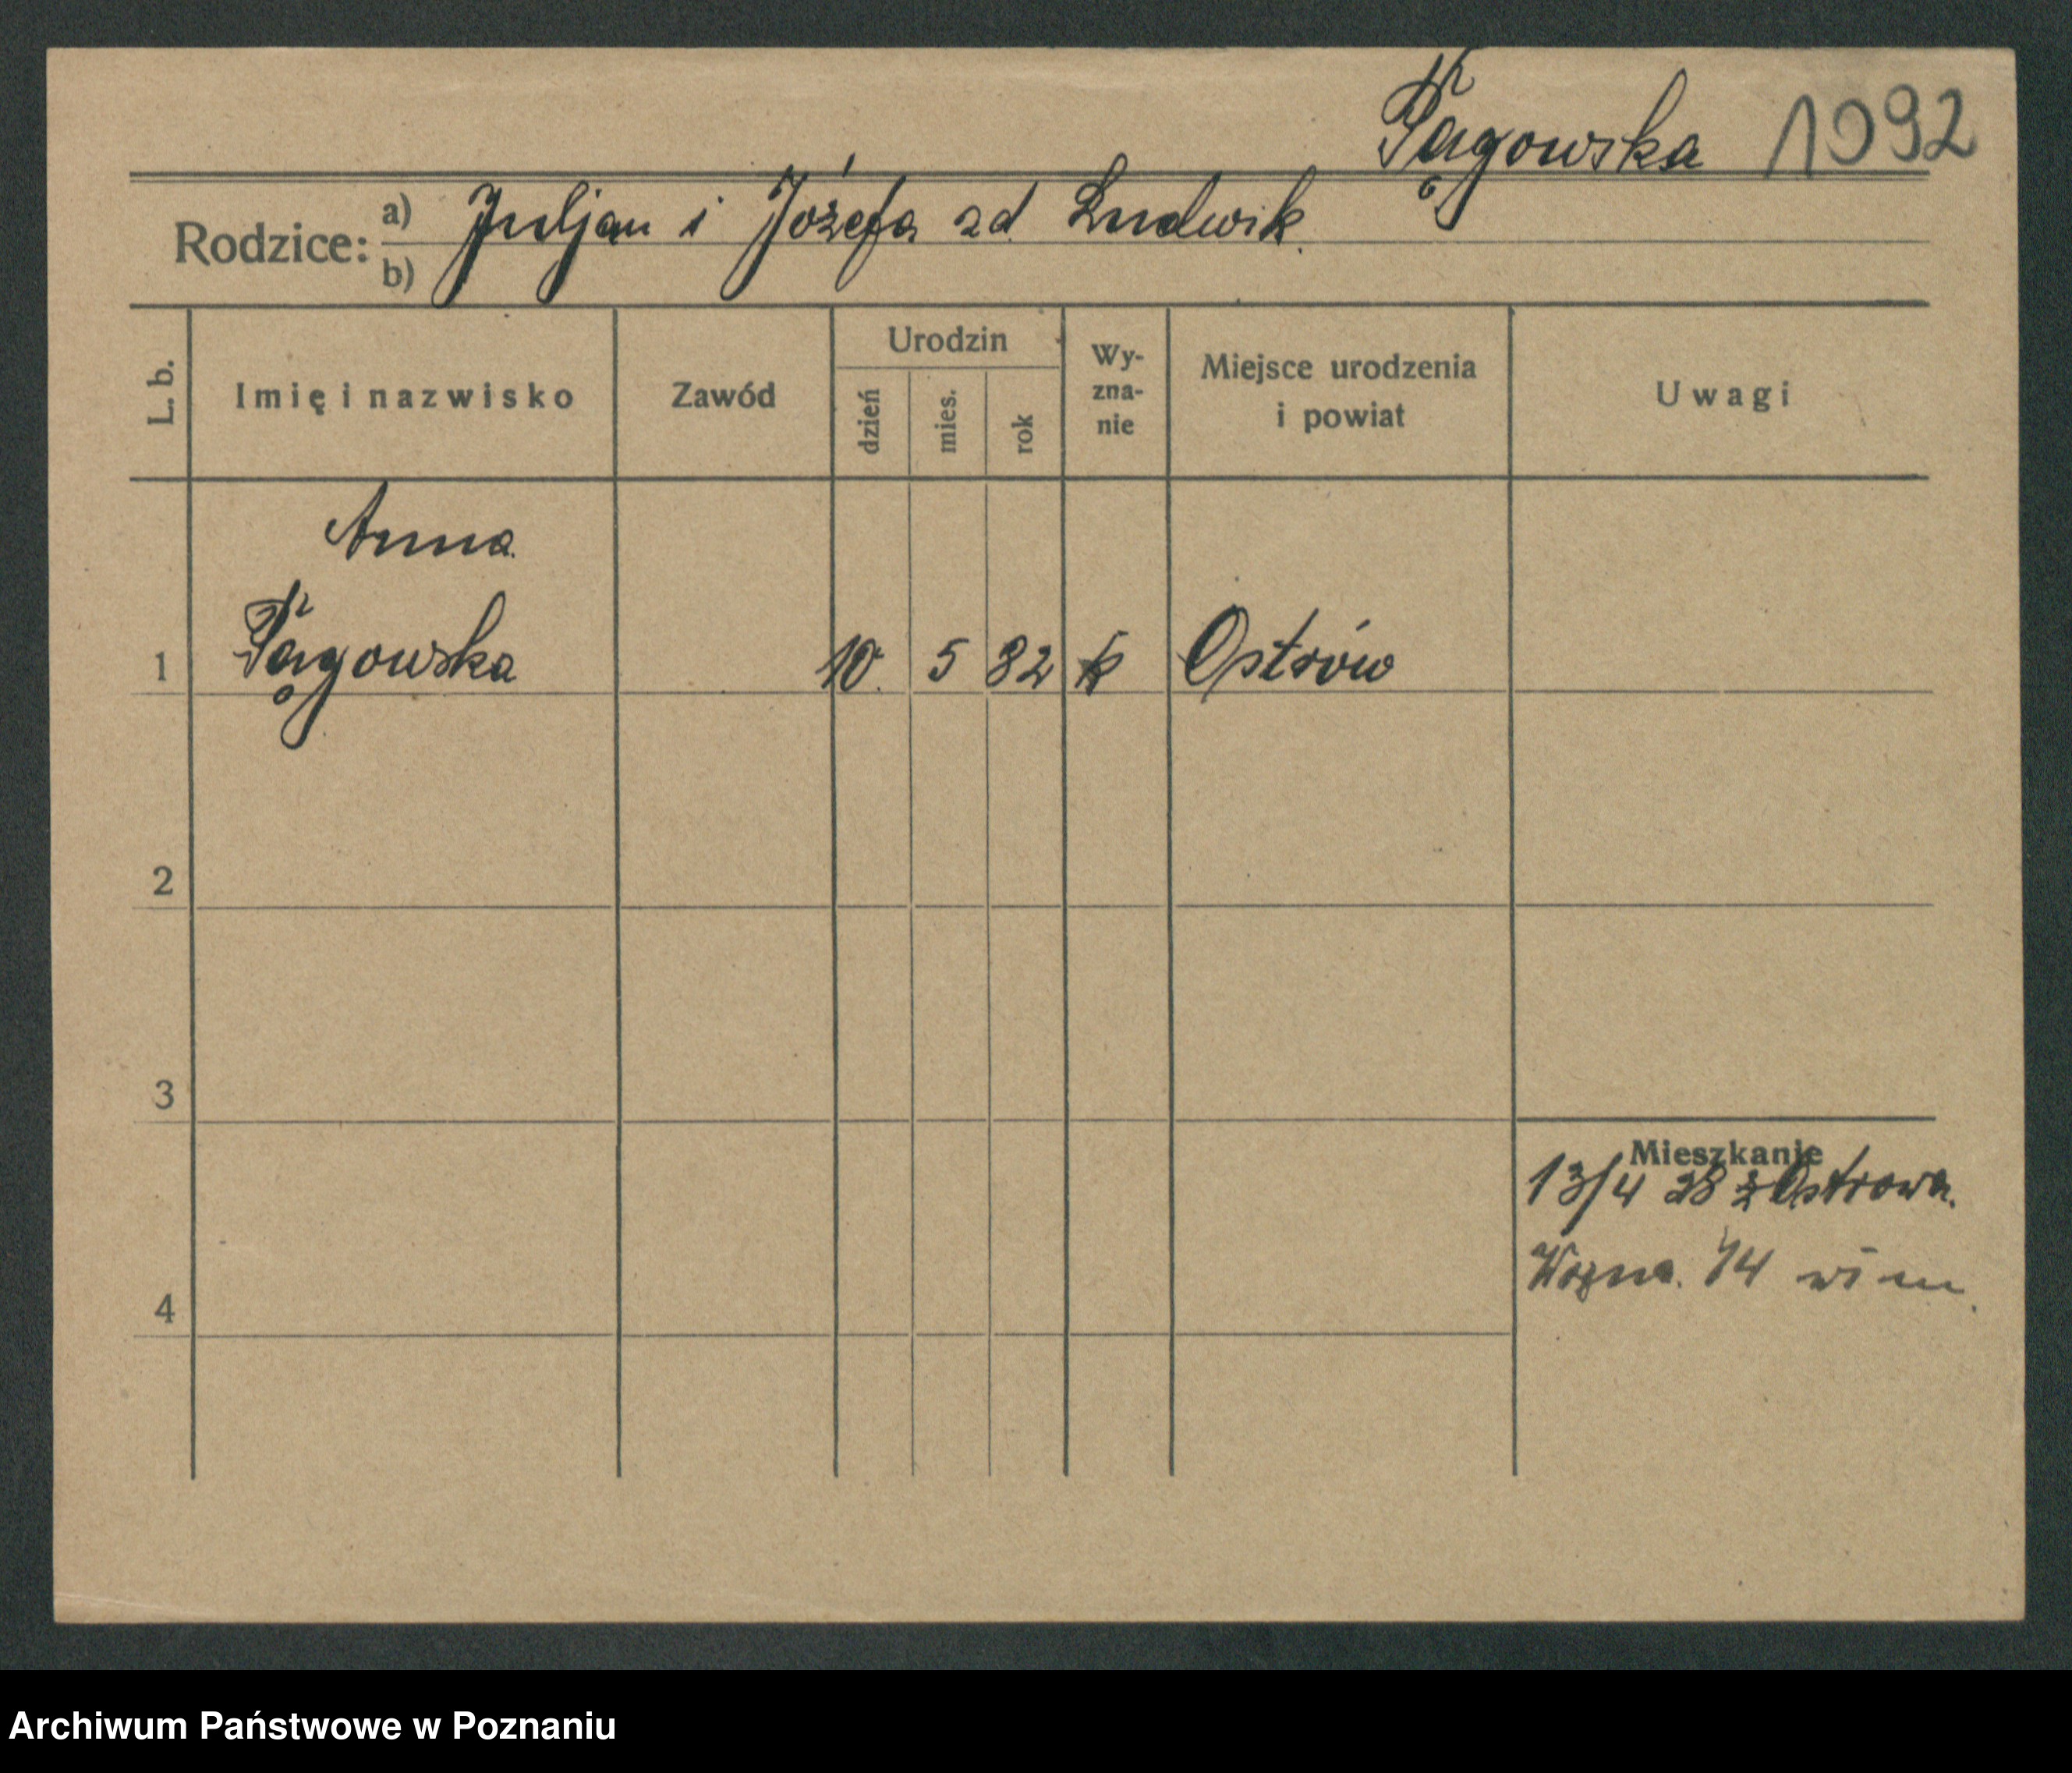 Pągowska 1092
Rodzice: a) Juljan i Józefa zd. Ludwik.
b)
L. b. Imię i nazwisko Zawód Urodzin dzień mies. rok Wy-zna-nie Miejsce urodzenia i powiat Uwagi
Anna
1 Pągowska 10. 5 82 k Ostrów
2
3
Mieszkanie
13/4 28 z Ostrowa.
Woźna. 14
4
Archiwum Państwowe w Poznaniu